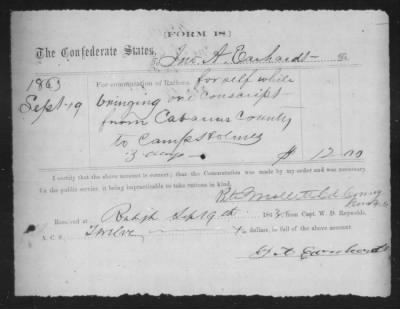 [FORM 18]
The Confederate States,
To Jno. A. Earhardt Dr.
1863 For commutation of Rations for self while
Sept 19 bringing one conscript
from Cabarrus County
to Camp Holmes
3 days $ 12.00
I certify that the above account is correct; that the Commutation was made by my order and was necessary
for the public service, it being impracticable to take rations in kind.
Peter Mallett Col Comg
Received at Raleigh Sept 19th 1863, from Capt. W. D. Reynolds,
A. C. S. Twelve dollars, in full of the above account.
J A Earnhardt